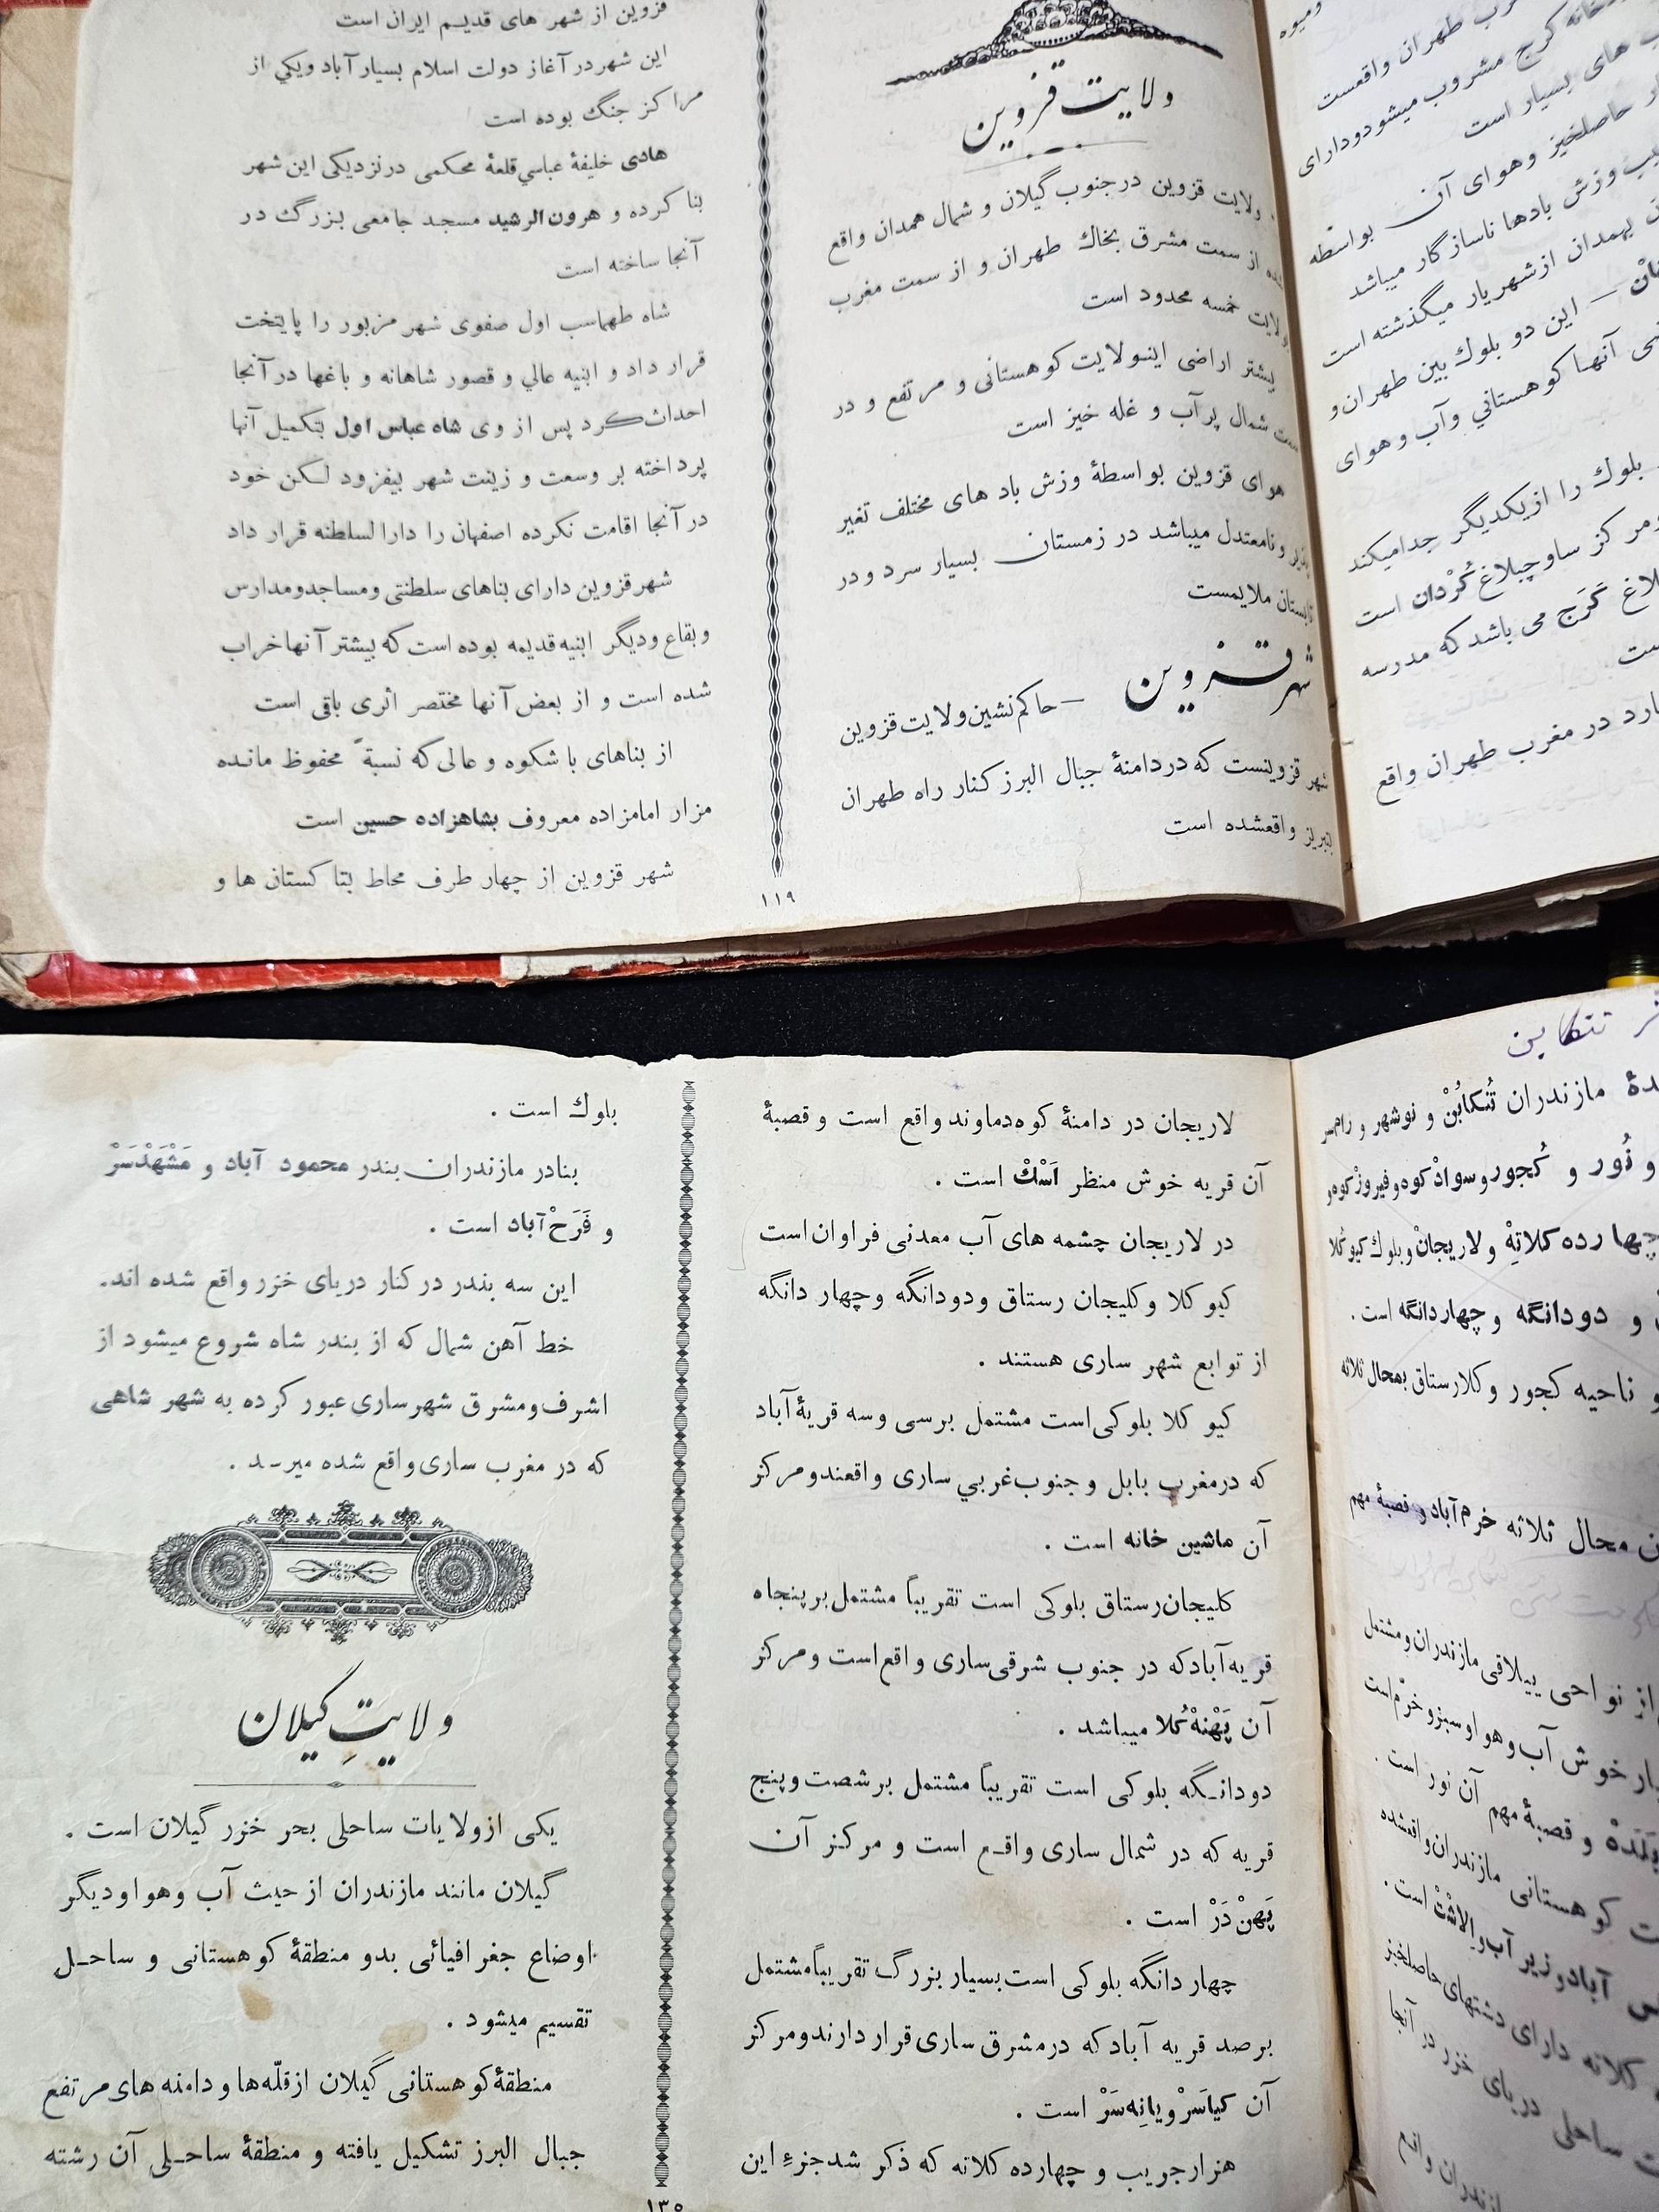 ولایت قزوین
ولایت قزوین در جنوب گیلان و شمال همدان واقع
از سمت مشرق بخاك طهران و از سمت مغرب
خمسه محدود است
بیشتر اراضی اینولایت کوهستانی و مرتفع و در
شمال پر آب و غله خیز است
هوای قزوین بواسطهٔ وزش باد های مختلف تغیر
و نامعتدل میباشد در زمستان بسیار سرد و در
تابستان ملایمست
شهر قزوین — حاکم نشین ولایت قزوین
شهر قزوینست که در دامنهٔ جبال البرز کنار راه طهران
تبریز واقعشده است
قزوین از شهر های قدیم ایران است
این شهر در آغاز دولت اسلام بسیار آباد ویکی از
مراکز جنگ بوده است
هادی خلیفهٔ عباسی قلعهٔ محکمی در نزدیکی این شهر
بنا کرده و هرون الرشید مسجد جامعی بزرگ در
آنجا ساخته است
شاه طهماسب اول صفوی شهر مزبور را پایتخت
قرار داد و ابنیه عالي و قصور شاهانه و باغها در آنجا
احداث کرد پس از وی شاه عباس اول بتکمیل آنها
پرداخته بر وسعت و زینت شهر بیفزود لکن خود
در آنجا اقامت نکرده اصفهان را دارالسلطنه قرار داد
شهر قزوین دارای بناهای سلطنتی و مساجد و مدارس
و بقاع و دیگر ابنیه قدیمه بوده است که بیشتر آنها خراب
شده است و از بعض آنها مختصر اثری باقی است
از بناهای با شکوه و عالی که نسبةً محفوظ مانده
مزار امامزاده معروف بشاهزاده حسین است
شهر قزوین از چهار طرف محاط بتاکستان ها و
۱۱۹
طهران واقعست
کرج مشروب میشود دارای
های بسیار است
حاصلخیز و هوای آن بواسطه
وزش بادها ناسازگار میباشد
بهمدان از شهریار میگذشته است
— این دو بلوك بین طهران و
آنها کوهستاني و آب و هوای
بلوك را از یکدیگر جدا میکند
و مرکز ساوجبلاغ کُرْدان است
کَرَج می باشد که مدرسه
در مغرب طهران واقع
لاریجان در دامنهٔ کوه دماوند واقع است و قصبهٔ
آن قریه خوش منظر اَسْكْ است .
در لاریجان چشمه های آب معدنی فراوان است
کیو کلا و کلیجان رستاق و دودانگه و چهار دانگه
از توابع شهر ساری هستند .
کیو کلا بلوکی است مشتمل برسی وسه قریهٔ آباد
که در مغرب بابل و جنوب غربي ساری واقعند و مرکز
آن ماشین خانه است .
کلیجان رستاق بلوکی است تقریباً مشتمل بر پنجاه
قریه آباد که در جنوب شرقی ساری واقع است و مرکز
آن پَهْنهْ کُلا میباشد .
دودانگه بلوکی است تقریباً مشتمل بر شصت و پنج
قریه که در شمال ساری واقع است و مرکز آن
پَهنْ دَرْ است .
چهار دانگه بلوکی است بسیار بزرگ تقریباً مشتمل
برصد قریه آباد که در مشرق ساری قرار دارند و مرکز
آن کیاسَرْ و یانِه سَرْ است .
هزار جریب و چهارده کلاته که ذکر شد جزءِ این
بلوك است .
بنادر مازندران بندر محمود آباد و مَشْهَدْسَرْ
و فَرَحْ آباد است .
این سه بندر در کنار دریای خزر واقع شده اند.
خط آهن شمال که از بندر شاه شروع میشود از
اشرف و مشرق شهر ساری عبور کرده به شهر شاهی
که در مغرب ساری واقع شده میرسد .
ولایتِ گیلان
یکی از ولایات ساحلی بحر خزر گیلان است .
گیلان مانند مازندران از حیث آب و هوا و دیگر
اوضاع جغرافیائی بدو منطقهٔ کوهستانی و ساحلی
تقسیم میشود .
منطقهٔ کوهستانی گیلان از قلّه ها و دامنه های مرتفع
جبال البرز تشکیل یافته و منطقهٔ ساحلی آن رشته
۱۳۵
تنکابن
مازندران تُنکابُنْ و نوشهر و رامسر
و نُور و کُجور و سوادْکوه و فیروزْکوه و
چهارده کلاتِهْ و لاریجانْ و بلوك کیو کُلا
و دودانگه و چهاردانگه است .
ناحیه کجور و کلارستاق بمحال ثلاثه
محال ثلاثه خرم آباد و قصبهٔ مهم
از نواحی ییلاقی مازندران و مشتمل
خوش آب و هوا و سبز و خرّم است
بَلَدَهْ و قصبهٔ مهم آن نور است .
کوهستانی مازندران واقعشده
آباد و زیر آب و الاشْتْ است .
کلاته دارای دشتهای حاصلخیز
ساحلی دریای خزر در آنجا
مازندران واقع